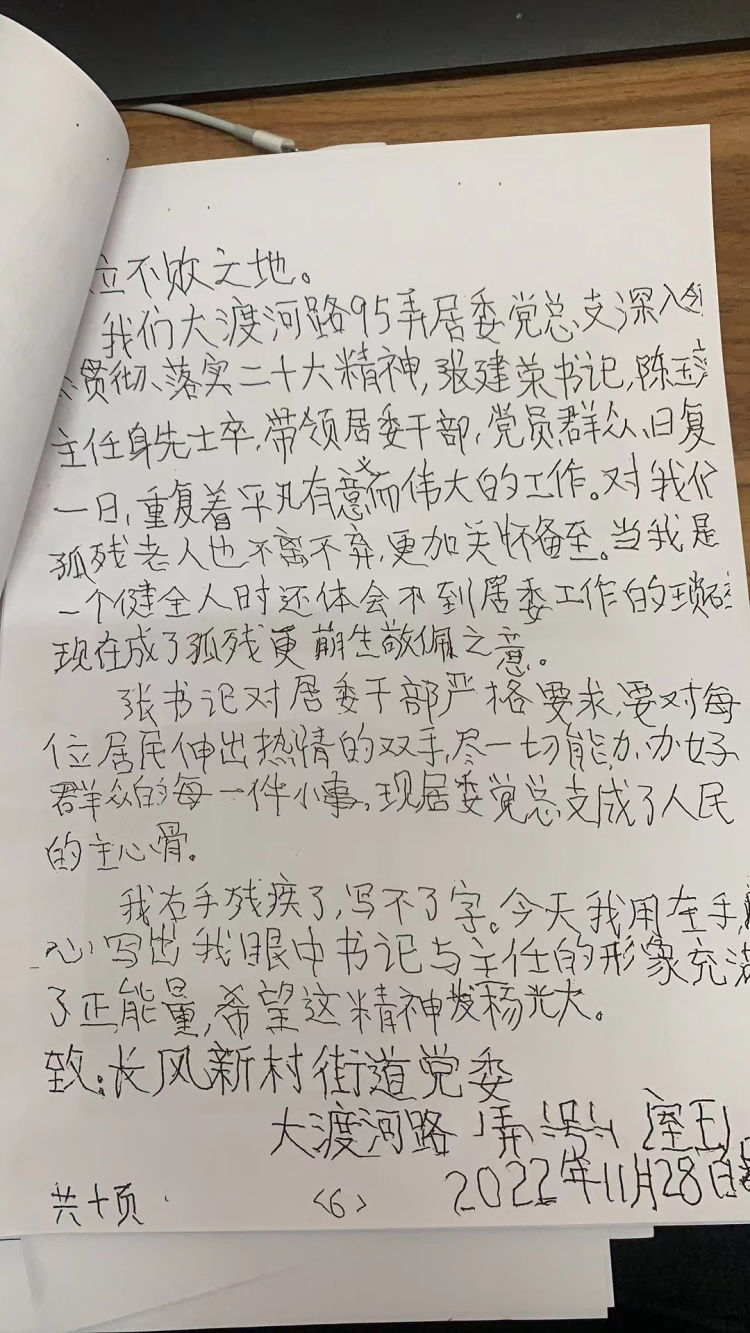 立不败之地。
我们大渡河路95弄居委党总支深入
贯彻、落实二十大精神,张建荣书记,陈
主任身先士卒,带领居委干部,党员,群众、日复
一日,重复着平凡有意义而伟大的工作。对我们
孤残老人也不离不弃,更加关怀备至。当我是
一个健全人时还体会不到居委工作的琐碎
现在成了孤残更萌生敬佩之意。
张书记对居委干部严格要求,要对每
位居民伸出热情的双手,尽一切能力,办好
群众的每一件小事,现居委党总支成了人民
的主心骨。
我右手残疾了,写不了字。今天我用左手,
心写出我眼中书记与主任的形象充满
了正能量,希望这精神发杨光大。
致:长风新村街道党委
大渡河路 弄 号 室
2022年11月28日
共十页 <6>